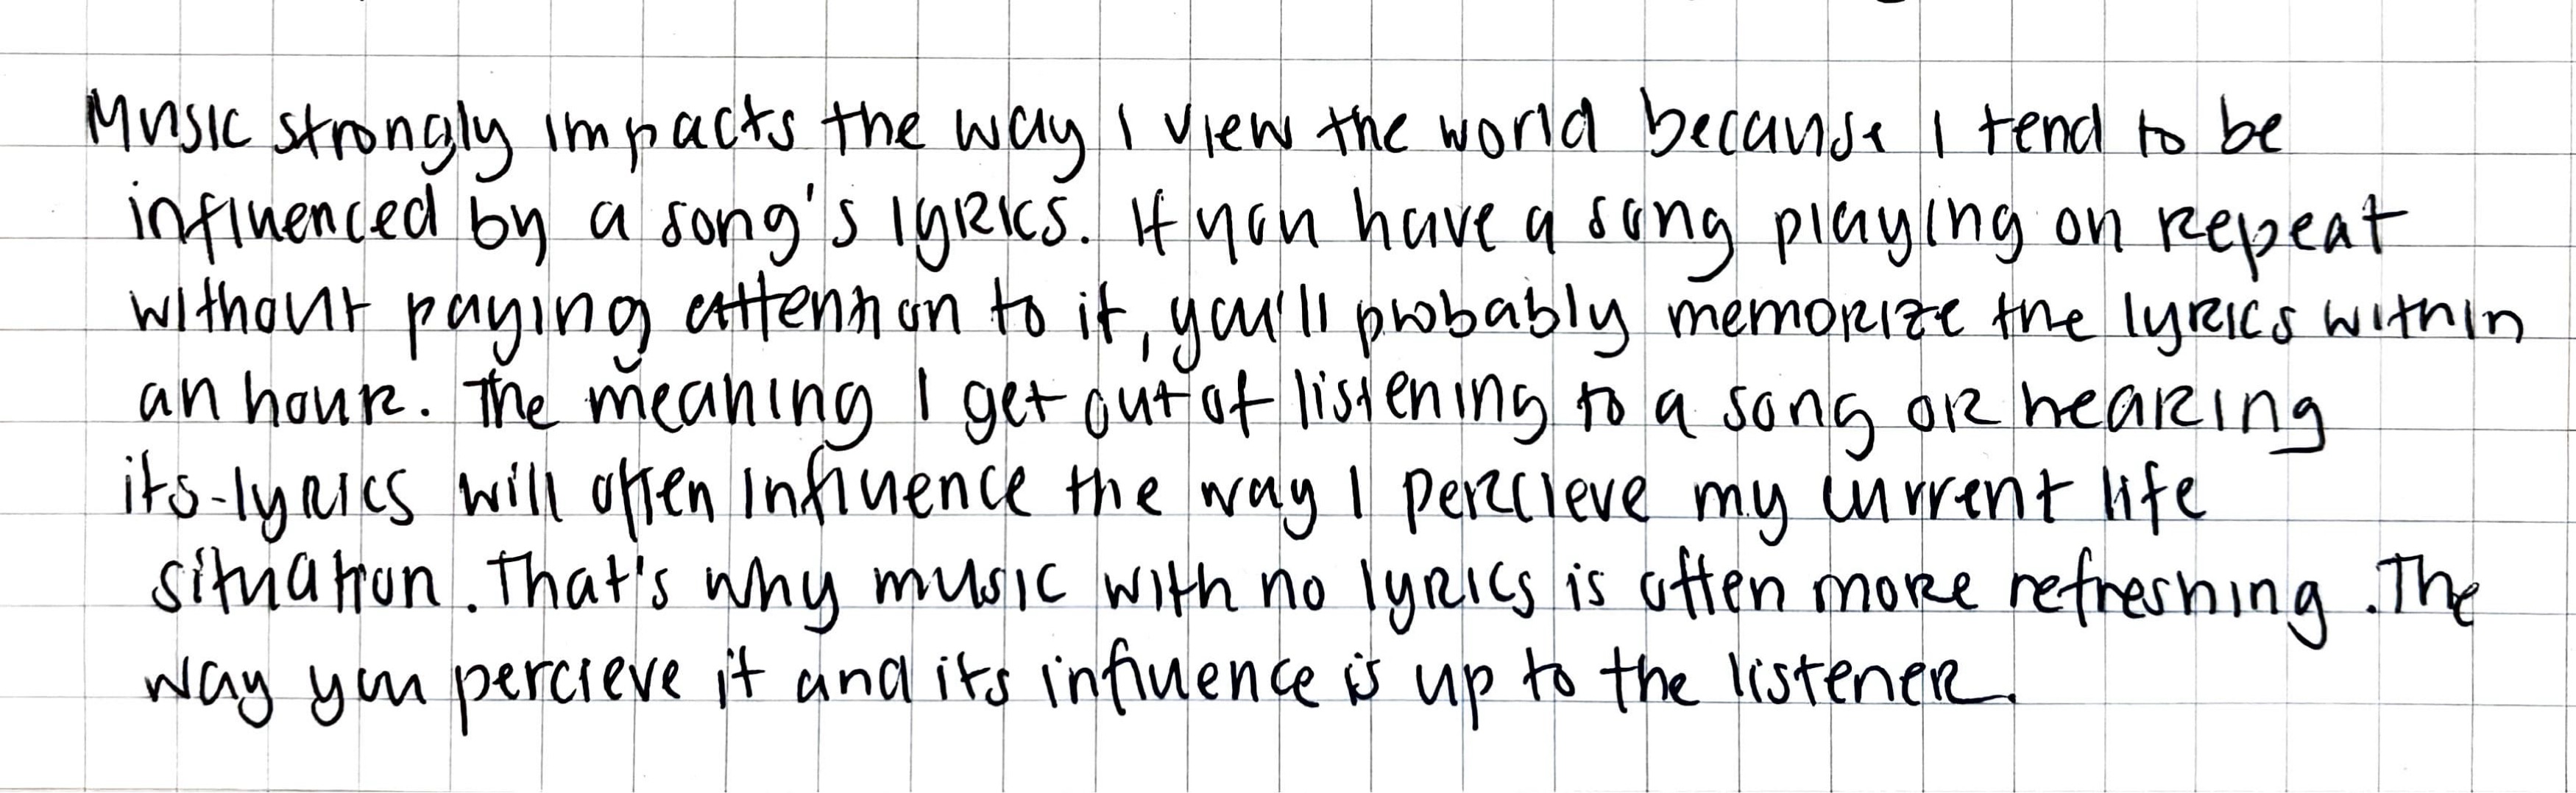 Music strongly impacts the way I view the world because I tend to be
influenced by a song's lyrics. If you have a song playing on repeat
without paying attention to it, you'll probably memorize the lyrics within
an hour. The meaning I get out of listening to a song or hearing
its-lyrics will often influence the way I percieve my current life
situation. That's why music with no lyrics is often more refreshing. The
way you percieve it and its influence is up to the listener.